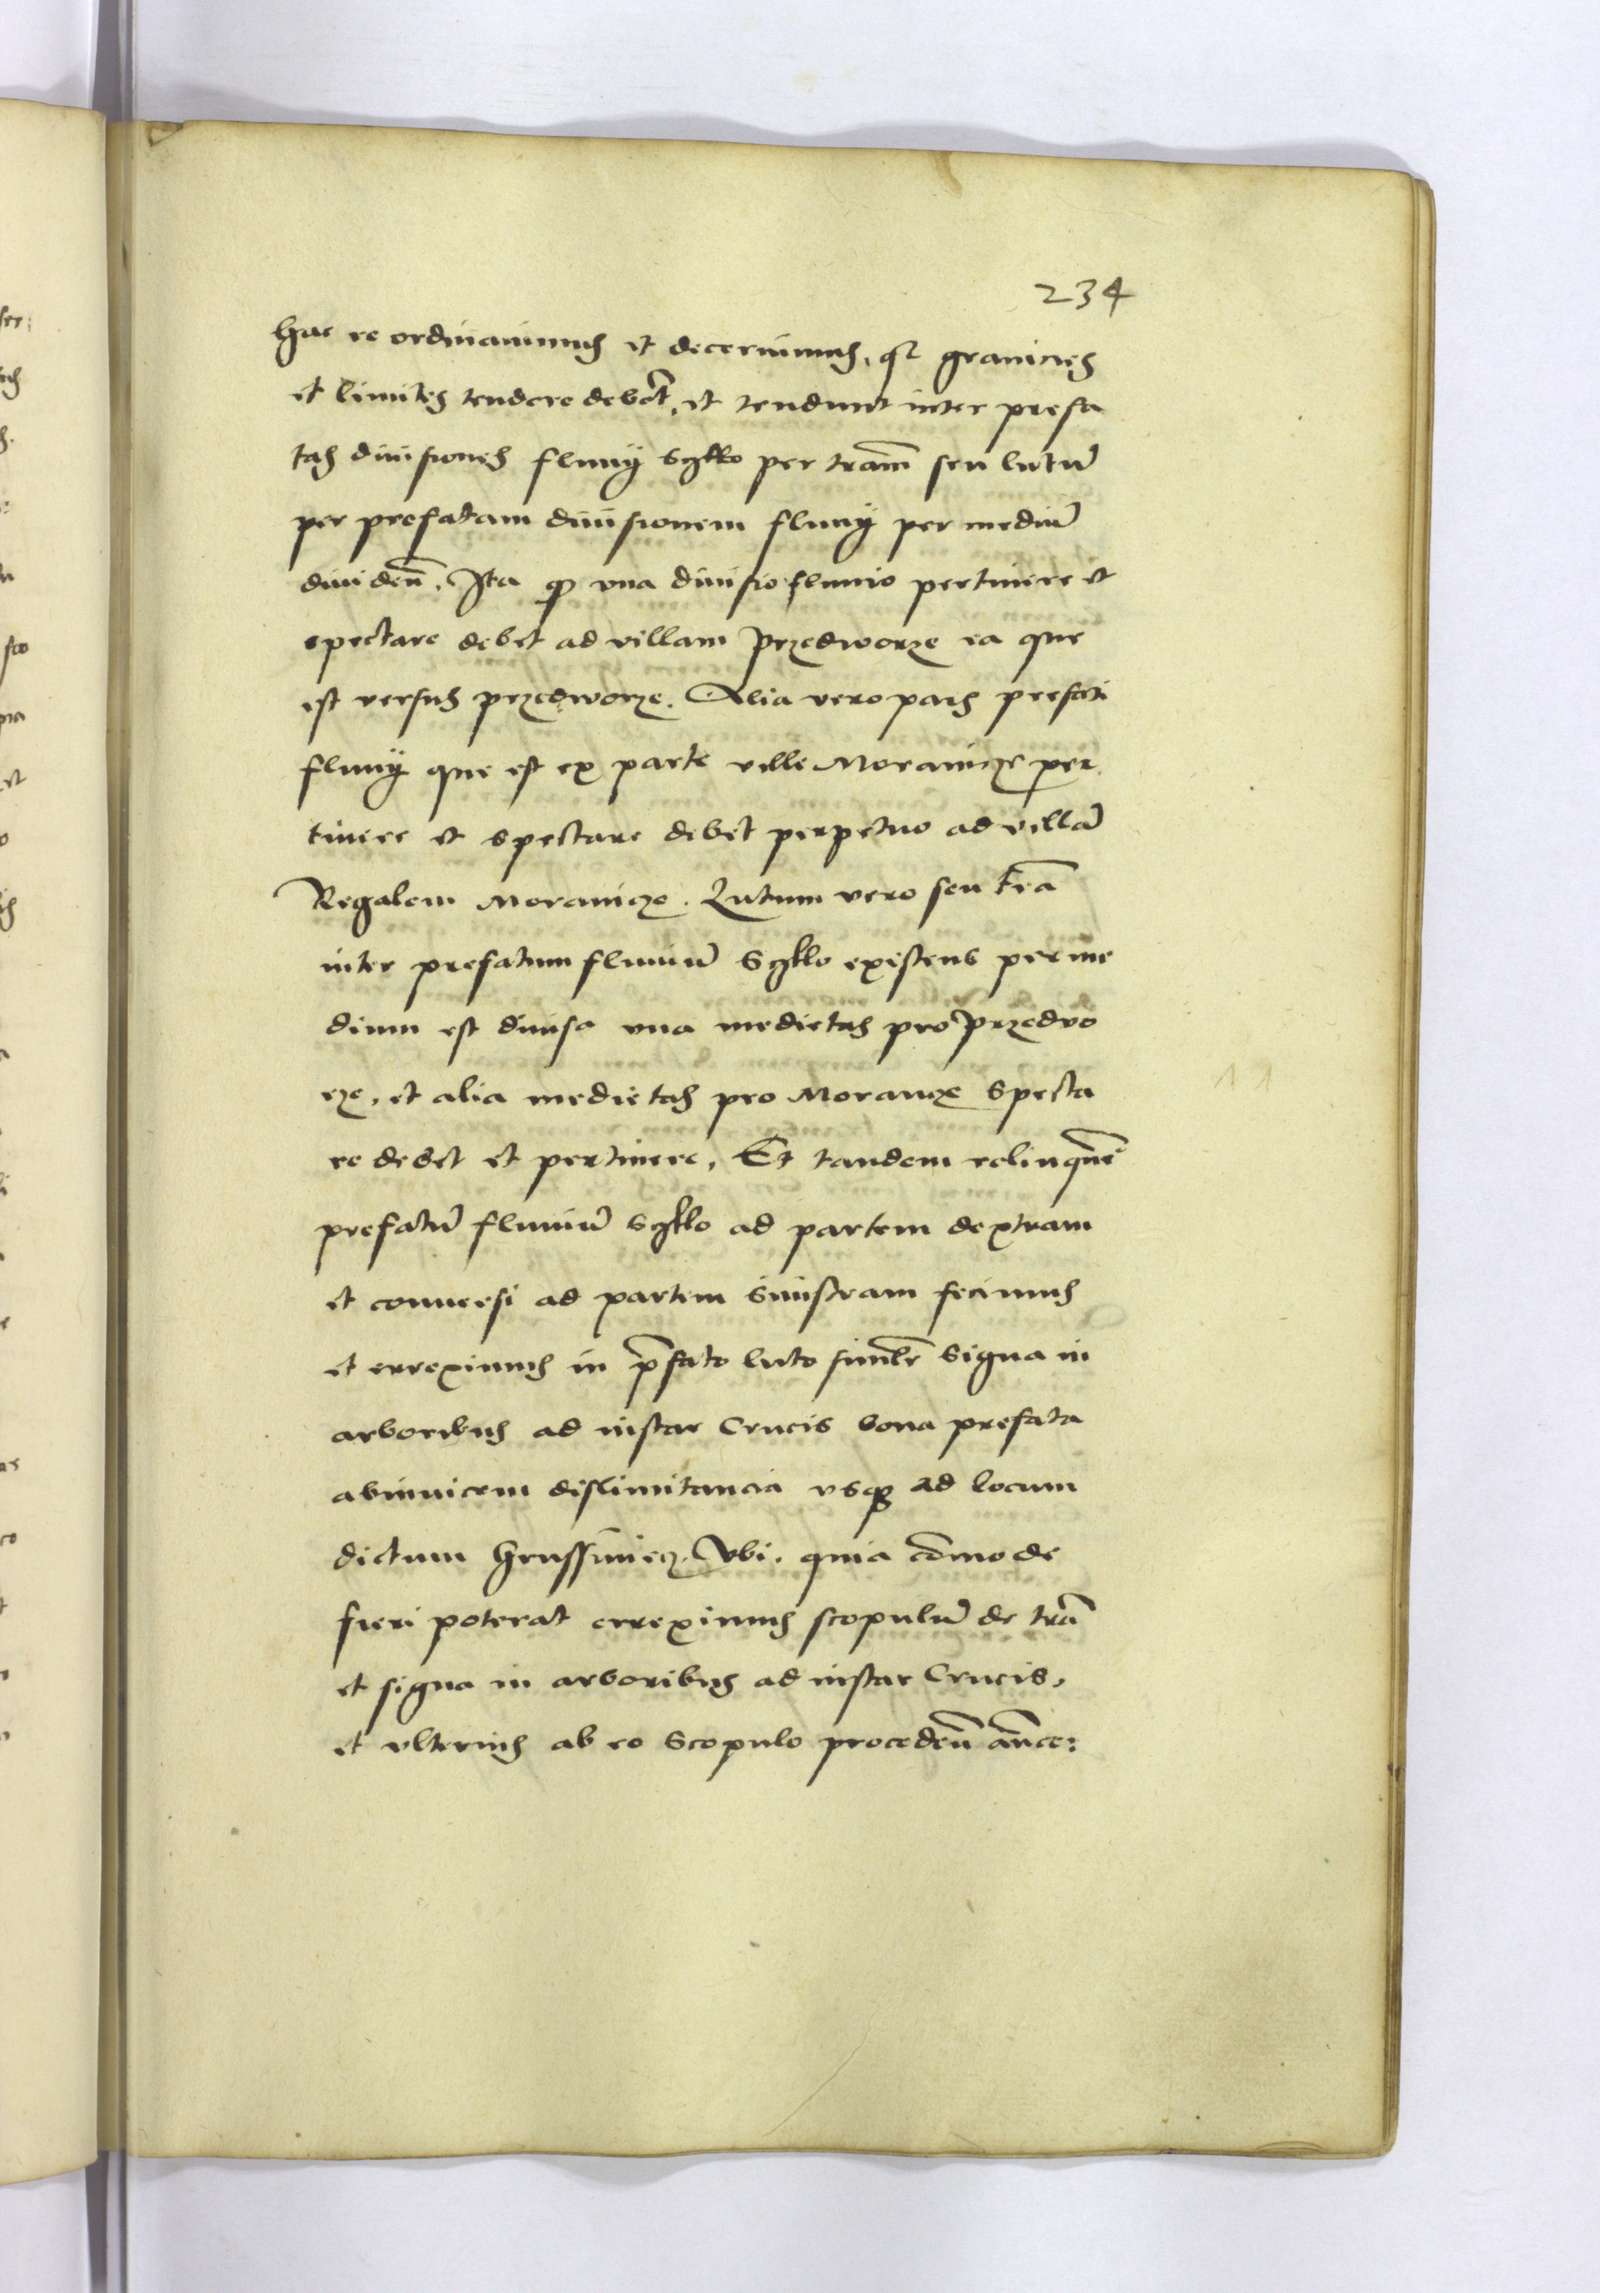 234
hac re ordinauimus et decernimus, qr granicies
et limites tendere debent, et tendunt inter prefa
tas diuisiones fluuij Sczklo per tram seu lutū
per prefatam diuisionem fluuij per mediū
diuiden̄. Ita qȝ vna diuisio fluuio pertinere et
spectare debet ad villam Przedworze ea que
est versus przedworze. Alia vero pars prefati
fluuij que est ex parte ville Morawicze per
tinere et spectare debet perpetuo ad villā
Regalem Morawicze. Lutum vero seu t͞ra
inter prefatum fluuiū existens per me
dium est diuisa vna medietas pro Przedwo
rze, et alia medietas pro Morawcze Specta
re debet et pertinere, Et tandem relinquen̄
prefatū fluuiū ad partem dextram
et conuersi ad partem Sinistram fecimus
et erreximus in p̄fato luto simlr Signa in
arboribus ad instar Crucis bona prefata
abinuicem dislimitancia vsqȝ ad locum
dictum Vbi. quia cōmode
fieri poterat erreximus scopulū de trā
et signa in arboribus ad instar Crucis,
et vlterius ab eo Scopulo proceden̄
11